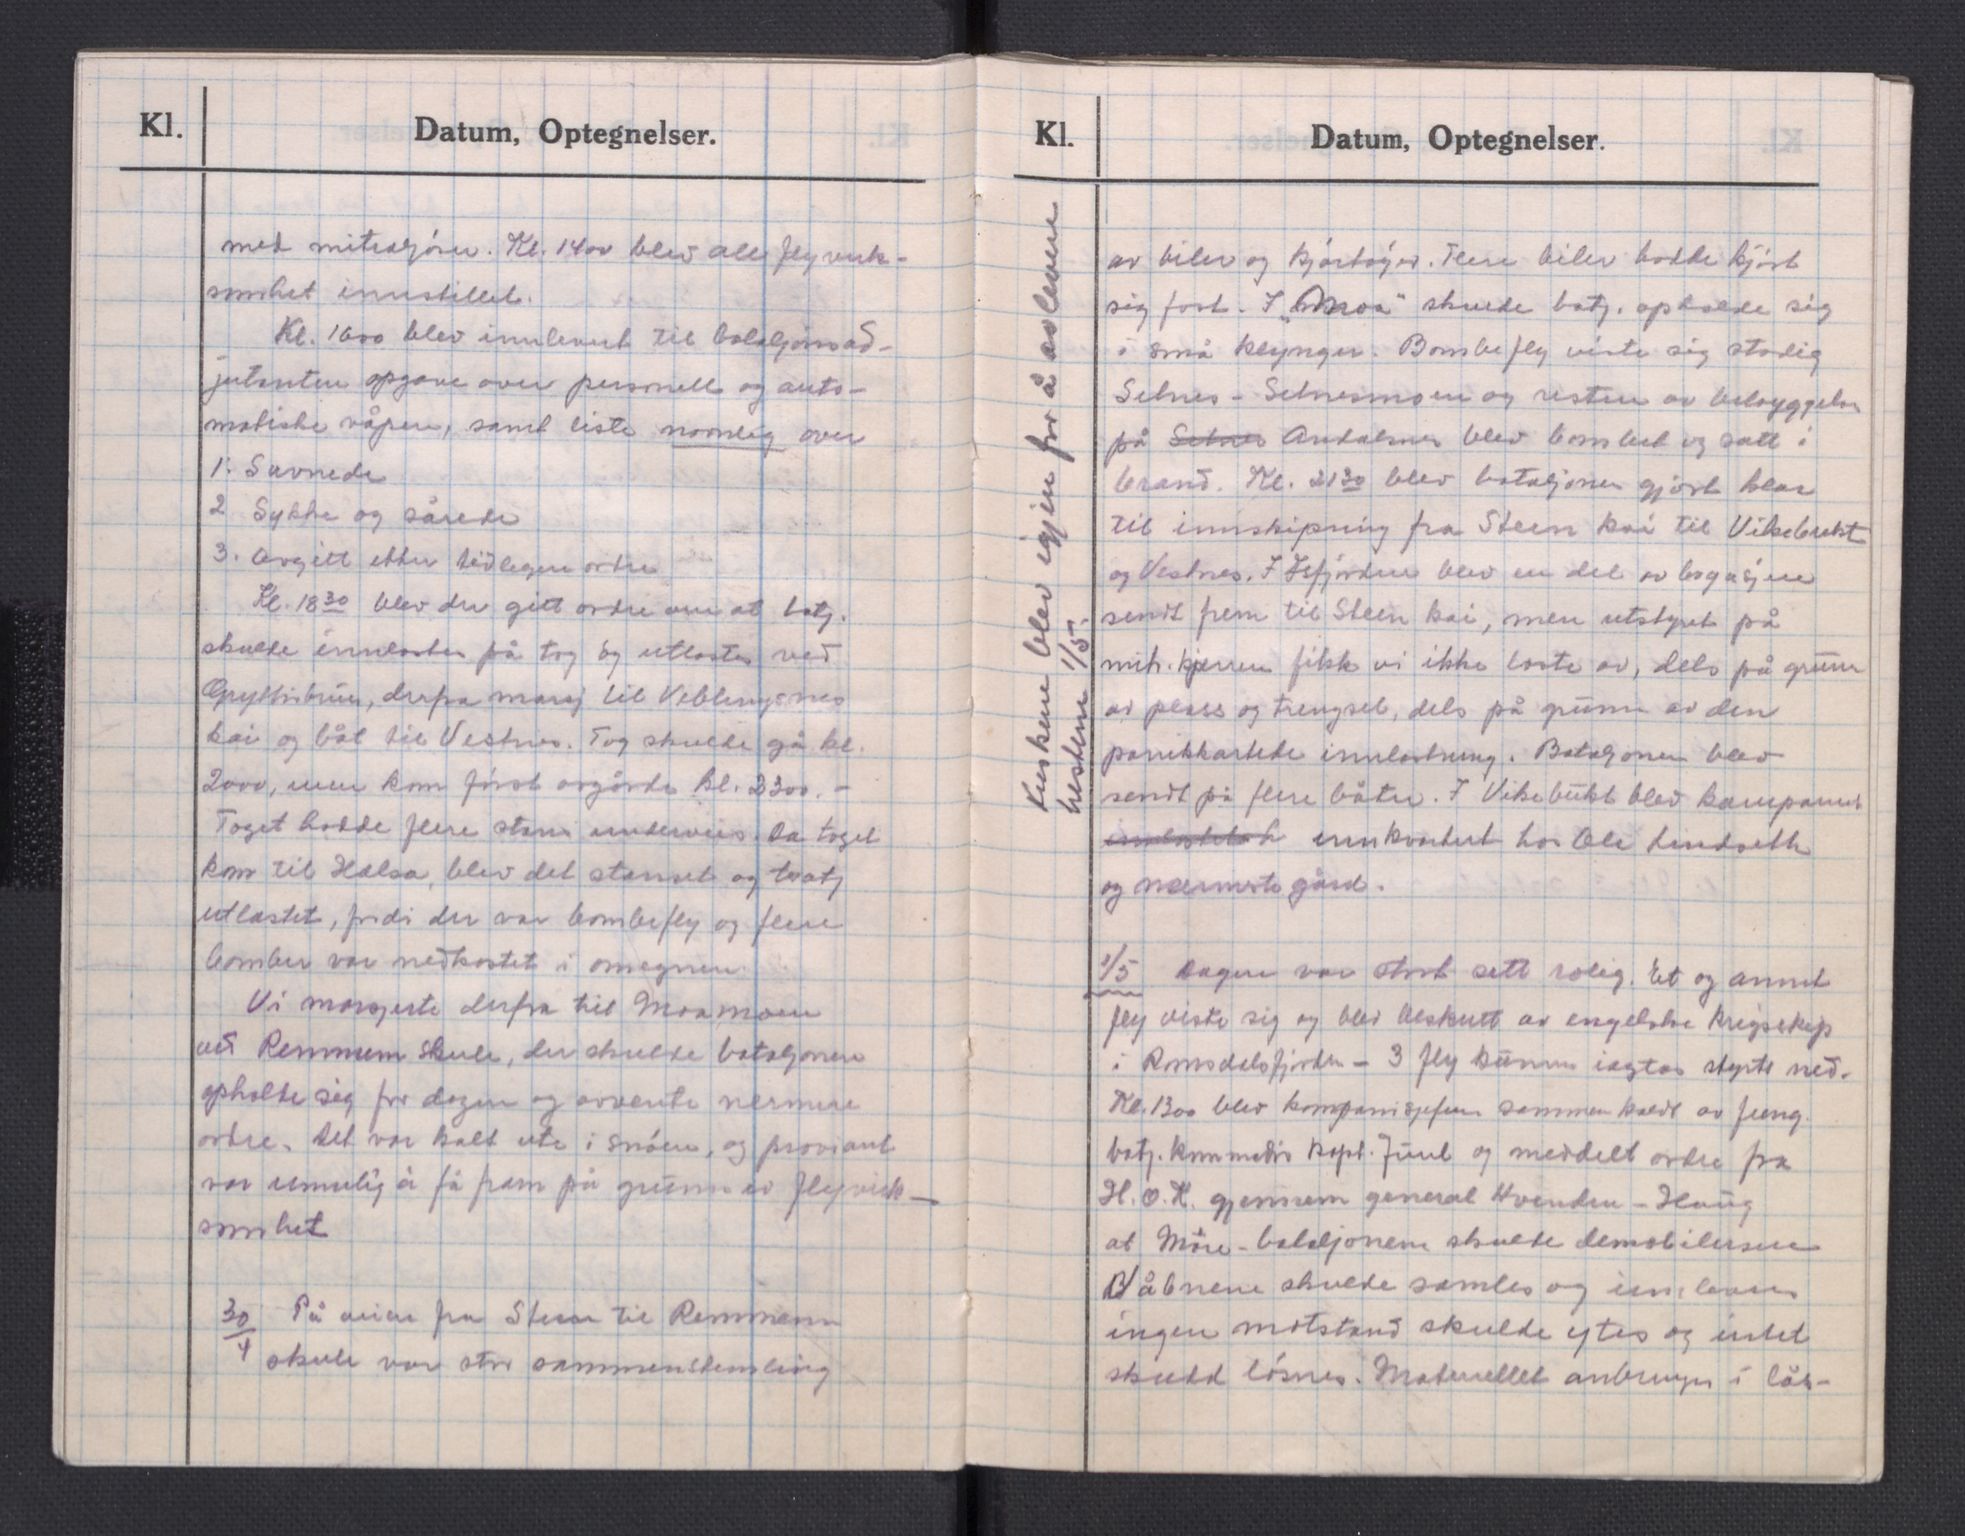 Kl.
Datum, Optegnelser.
med mitraljöser. Kl. 1400 blev all flyvirk-
somhet innstillet.
Kl. 1600 blev innlevert til bataljonsad-
jutanten opgave over personell og auto-
matiske våpen, samt liste navnlig over
1. Savnede
2 Sykke og sårede
3. Avgitt etter tidligere ordre
Kl. 18 30 blev der gitt ordre om at batj.
skulde innlastes på tog og utlastes ved
derfra marsj til Veblungsnes
kai og båt til Vestnes. Tog skulde gå kl.
2000, men kom först avgårde kl. 2300. -
Toget hadde flere stans underveis. Da toget
kom til Halsa, blev det stanset og batj
utlastet, fordi der var bombefly og flere
bomber var nedkastet i omegnen.
Vi marsjerte derfra til Moamoen
ved Remmem skule, der skulde bataljonen
opholde sig for dagen og avvente nermere
ordre. Det var kalt ute i snöen, og proviant
var umulig å få fram på grunn av flyvirk-
somhet
30/4 På veien fra Steen til Remmem
skule var stor sammenstemling
Kl.
Datum, Optegnelser.
Kuskene blev igjen for å avlevere
hestene 1/5.
av biler og kjörtöyer. Flere biler hadde kjört
sig fast. I "Moa" skulde batj. opholde sig
i små klynger. Bombefly viste sig stadig
Setnes - Setnesmoen og resten av bebyggelsen
på Setnes Åndalsnes blev bombet og satt i
brand. Kl. 21 30 blev bataljonen gjort klar
til innskipning fra Steen kai til Vikebukt
og Vestnes. I Isfjorden blev en del av bagasjen
sendt frem til Steen kai, men utstyret på
mitr. kjerren fikk vi ikke laste av, dels på grunn
av plass og trengsel, dels på grunn av den
panikkartede innlastning. Bataljonen blev
sendt på flere båter. I Vikebukt blev kompaniet
innkvartert hos Ole Lindseth
og nærmeste gård.
1/5 Dagen var stort sett rolig. Et og annet
fly viste sig og blev beskutt av engelske krigsskip
i Romsdalsfjorden - 3 fly kunne iagtas styrte ned.
Kl. 1300 blev kompanisjefene sammenkaldt av fung.
batj. kommandör kapt. Juul og meddelt ordre fra
H.O.K. gjennem general Hvinden-Haug
at Möre-bataljonene skulde demobilisere
Våbnene skulde samles og innleveres
ingen motstand skulde ytes og intet
skudd lösnes. Materiellet anbringes i lås-